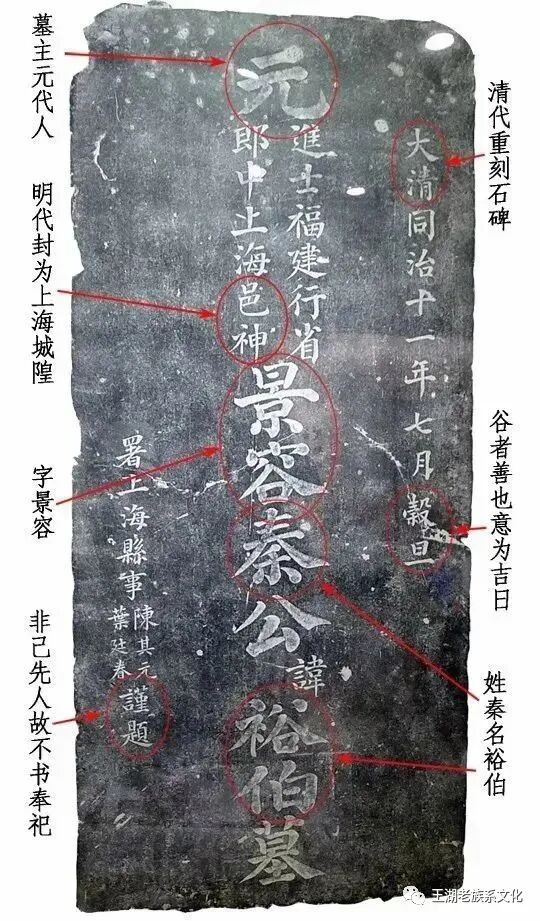 清代重刻石碑
谷者善也意为吉日
姓秦名裕伯
大清同治十一年七月穀旦
元
進士福建行省
郎中上海邑神
景容秦公
諱
裕伯墓
署上海縣事
陳其元
葉廷春
謹題
墓主元代人
明代封为上海城隍
字景容
非己先人故不书奉祀
王湖老族系文化